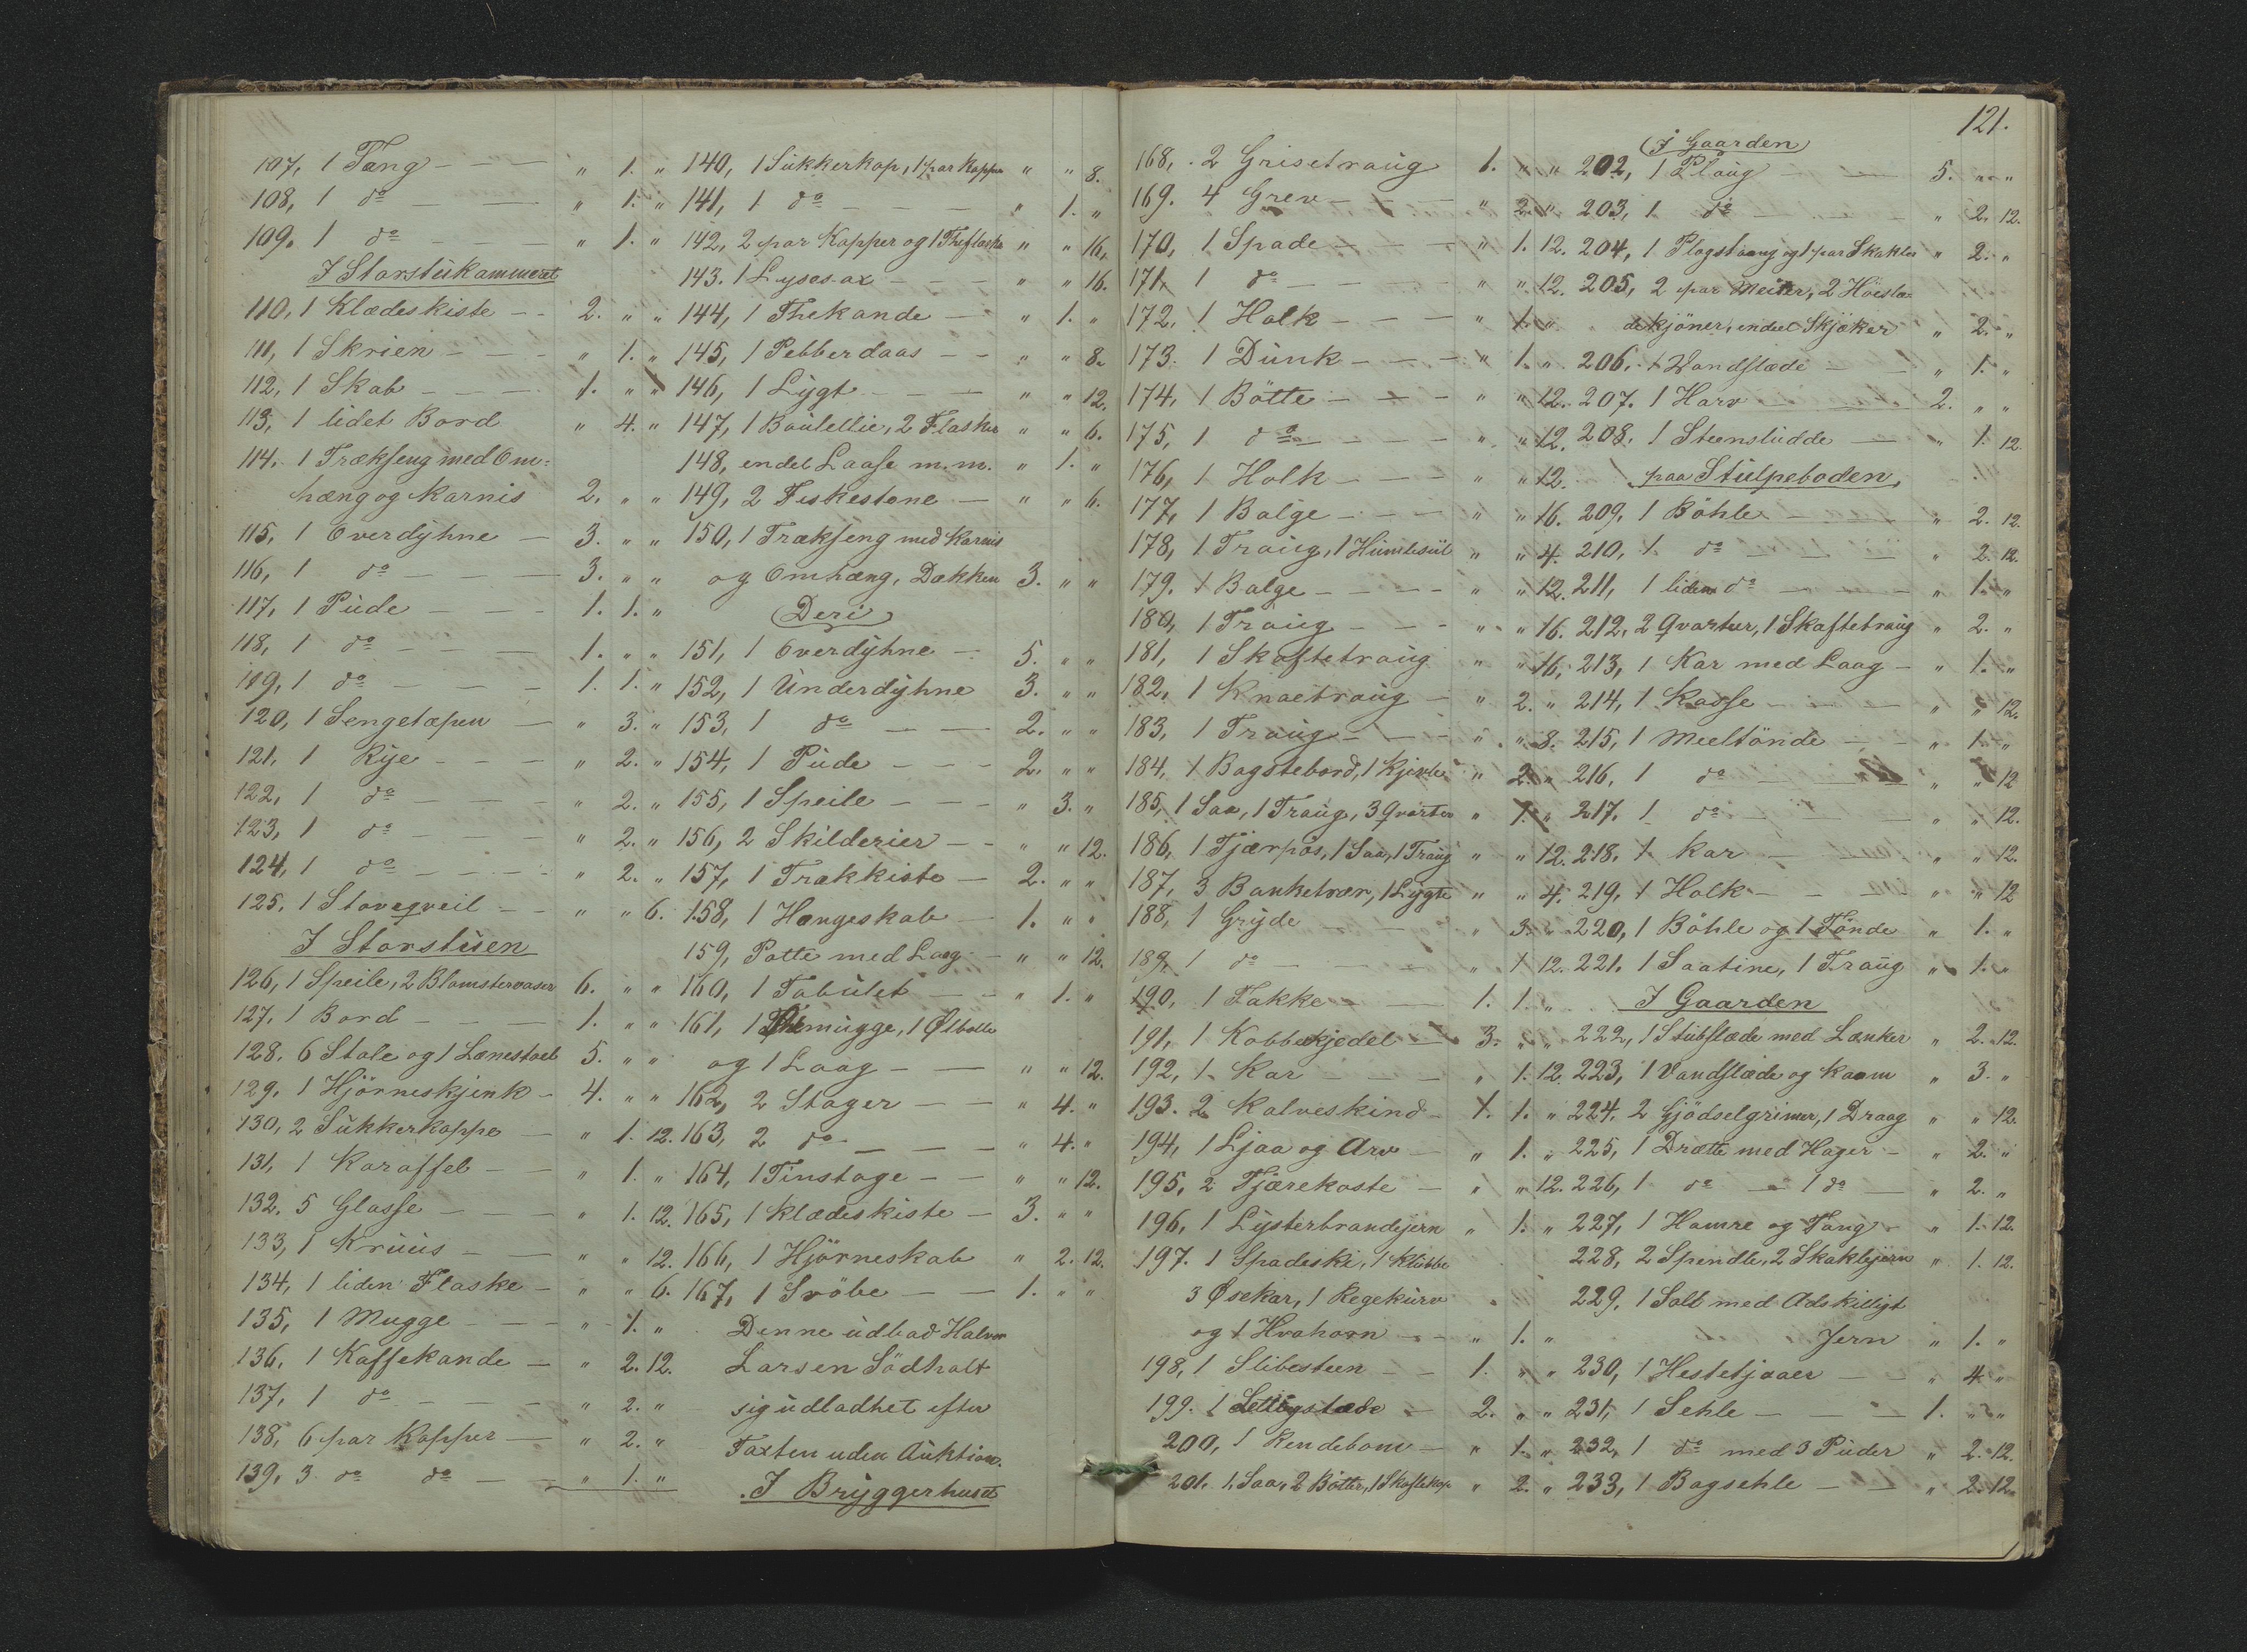 107, 1 Tang - - - " 1. "
108, 1 do - - " 1. "
109. 1 do - - " 1. "
I Storstukammeret
110, 1 Klædeskiste - - 2. " "
111, 1 Skrien - - - " 1. "
112, 1 Skab - - - 1. " "
113, 1 lidet Bord " 4. "
114. 1 Trækseng med Om=
hæng og Karnis 2. " "
115, 1 Overdyhne - 3. " "
116, 1 do - - - 3. " "
117, 1 Pude - - - 1. 1. "
118, 1 do - - - 1. " "
119, 1 do - - - 1. 1. "
120, 1 Sengetæpen - " 3. "
121, 1 Rye - - - " 2. "
122, 1 do - - - " 2. "
123, 1 do - - - " 2. "
124, 1 do - - - " 2. "
125, 1 Stovegveil - - " " 6.
I Storstuen
126, 1 Speile, 2 Blomstervaser 6. " "
127, 1 Bord - - - 1. " "
128. 6 Stole og 1 Lænestoel 5. " "
129. 1 Hjörneskjenk - 4. " "
130, 2 Sukkerkoppe - " 1. 12.
131, 1 Karaffel - - " 1. "
132. 5 Glasse - - - " 1. 12.
133, 1 Kruus - - " " 12.
134, 1 liden Flaske - " " 6.
135, 1 Mugge - - - " 1. "
136, 1 Kaffekande - " 2. 12.
137, 1 do - - - " 2. "
138, 6 par Kopper - " 2. "
139, 3 do do - - " 1. "
140, 1 Sukkerkop, 1 par Kopper " " 8.
141, 1 do - - - " 1. "
142, 2 par Kopper og 1 Theflaske " " 16.
143. 1 Lysesax - - - " " 16.
144, 1 Thekande - " 1. "
145, 1 Pebberdaas - - " " 8.
146, 1 Lygt - - - " " 12.
147, 1 Boutellie, 2 Flasker " " 6.
148, endel Laase m.m. " 1. "
149, 2 Fiskestone - " " 6.
150, 1 Trækseng med Karnis
og Omhæng, Dækken 3. " "
Deri
151, 1 Overdyhne - 5. " "
152, 1 Underdyhne 3. " "
153, 1 do - - 2. " "
154, 1 Pude - - - 2. " "
155, 1 Speile - - - " 3. "
156, 2 Skilderier - - " " 12.
157, 1 Trækkiste - 2. " "
158, 1 Hængeskab - 1. " "
159, Potte med Laag - " " 12.
160, 1 Tabulet - - " 1. "
161, 1 Ølmugge, 1 Ølbolle
og 1 Laag - - " " 12.
162, 2 Stager - - " 4. "
163, 2 do - - - " 4. "
164, 1 Tinstage - - " " 12.
165, 1 Klædeskiste - 3. " "
166, 1 Hjörneskab " 2. 12.
167, 1 Svöbe - - 1. " "
Denne udbad Halvor
Larsen Södholt
sig udladhet efter
Taxten uden Auktion.
I Bryggerhuset
121.
168, 2 Grisetraug 1. " "
169. 4 Grev - - - " 2. "
170, 1 Spade - - - " 1. 12.
171, 1 do - - - " " 12.
172, 1 Holk - - - " 1. "
173. 1 Dunk - - - " 1. "
174, 1 Bötte - - - " " 12.
175, 1 do - - - " " 12.
176, 1 Holk - - - " " 12.
177, 1 Balge - - - " " 16.
178, 1 Traug, 1 Humlesiil " " 4.
179. 1 Balge - - - " " 12.
180, 1 Traug - - - " " 16.
181, 1 Skaftetraug " " 16.
182, 1 Knaetraug - " 2. "
183, 1 Traug - - - " " 8.
184, 1 Bagstebord, 1 Kjevle " 2. "
185, 1 Saa, 1 Traug, 3 Qvarter " 1. "
186, 1 Tjærpös, 1 Saa, 1 Traug " " 12.
187, 3 Banketrær, 1 Lygte " " 4.
188, 1 Gryde " 3. "
189, 1 do - - - " 1 12.
190, 1 Takke - - 1. 1. "
191, 1 Kobberkjedel - 3. " "
192, 1 Kar - - - " 1. 12.
193. 2 Kalveskind - 1. 1. "
194, 1 Ljaa og Arv - " 1. "
195, 2 Tjærekoste - " " 12.
196, 1 Lysterbrandejern " 1. "
197. 1 Spadeski, 1 Klubbe
3 Øsekar, 1 Regekurv
og 1 Hvahorn - - " 1. "
198, 1 Slibesteen - - 1. " "
199. 1 - 2. " "
200, 1 Rendebom - " 1. "
201. 1 Saa, 2 Bötter, 1 Skaftekop " 2. "
I Gaarden
202, 1 Ploug - - 5. " "
203, 1 do - - " 2. 12.
204, 1 Plogstraug og 1 par Skakler " 2. "
205, 2 par Meier, 2 Höeslæ=
dekjöner, endeel Skjöker " 2. "
206. 1 Vandslæde - " 1. "
207. 1 Harv - - 2. " "
208. 1 Steenstudde - " 1. 12.
paa Stulpeboden,
209, 1 Böhle - - " 2. 12.
210, 1 do - - " 2. 12.
211, 1 liden do - " 1. "
212, 2 Qvarter, 1 Skaftetraug " 2. "
213, 1 Kar med Laag - " 1. "
214, 1 Kasse - - " " 12.
215, 1 Meeltönde - - " 1. "
216, 1 do - - " " 12
217. 1 do - - " " 12.
218. 1 Kar - - " " 12.
219, 1 Holk - - " " 12
220, 1 Böhle og 1 Tönde " 1. "
221. 1 Saatine, 1 Traug " 1. "
I Gaarden
222, 1 Stubslæde med Lænker " 2. 12.
223, 1 Vandslæde og Karm " 3. "
224, 2 Gjödselgrimer, 1 Draag " " 12.
225, 1 Drætte med Hager - " 2. "
226, 1 do - 1 do - " 2. "
227, 1 Hamre og Tang - " 1. 12.
228, 2 Spendle, 2 Skaklejern " 1. 12.
229. 1 Sold med Adskilligt
Jern " 1. "
230, 1 Hestetjaaer - - " 4 "
231, 1 Sehle - - - 1. " "
232, 1 do med 3 Puder " 2. 12.
233, 1 Bagsehle - - " 2. 12.